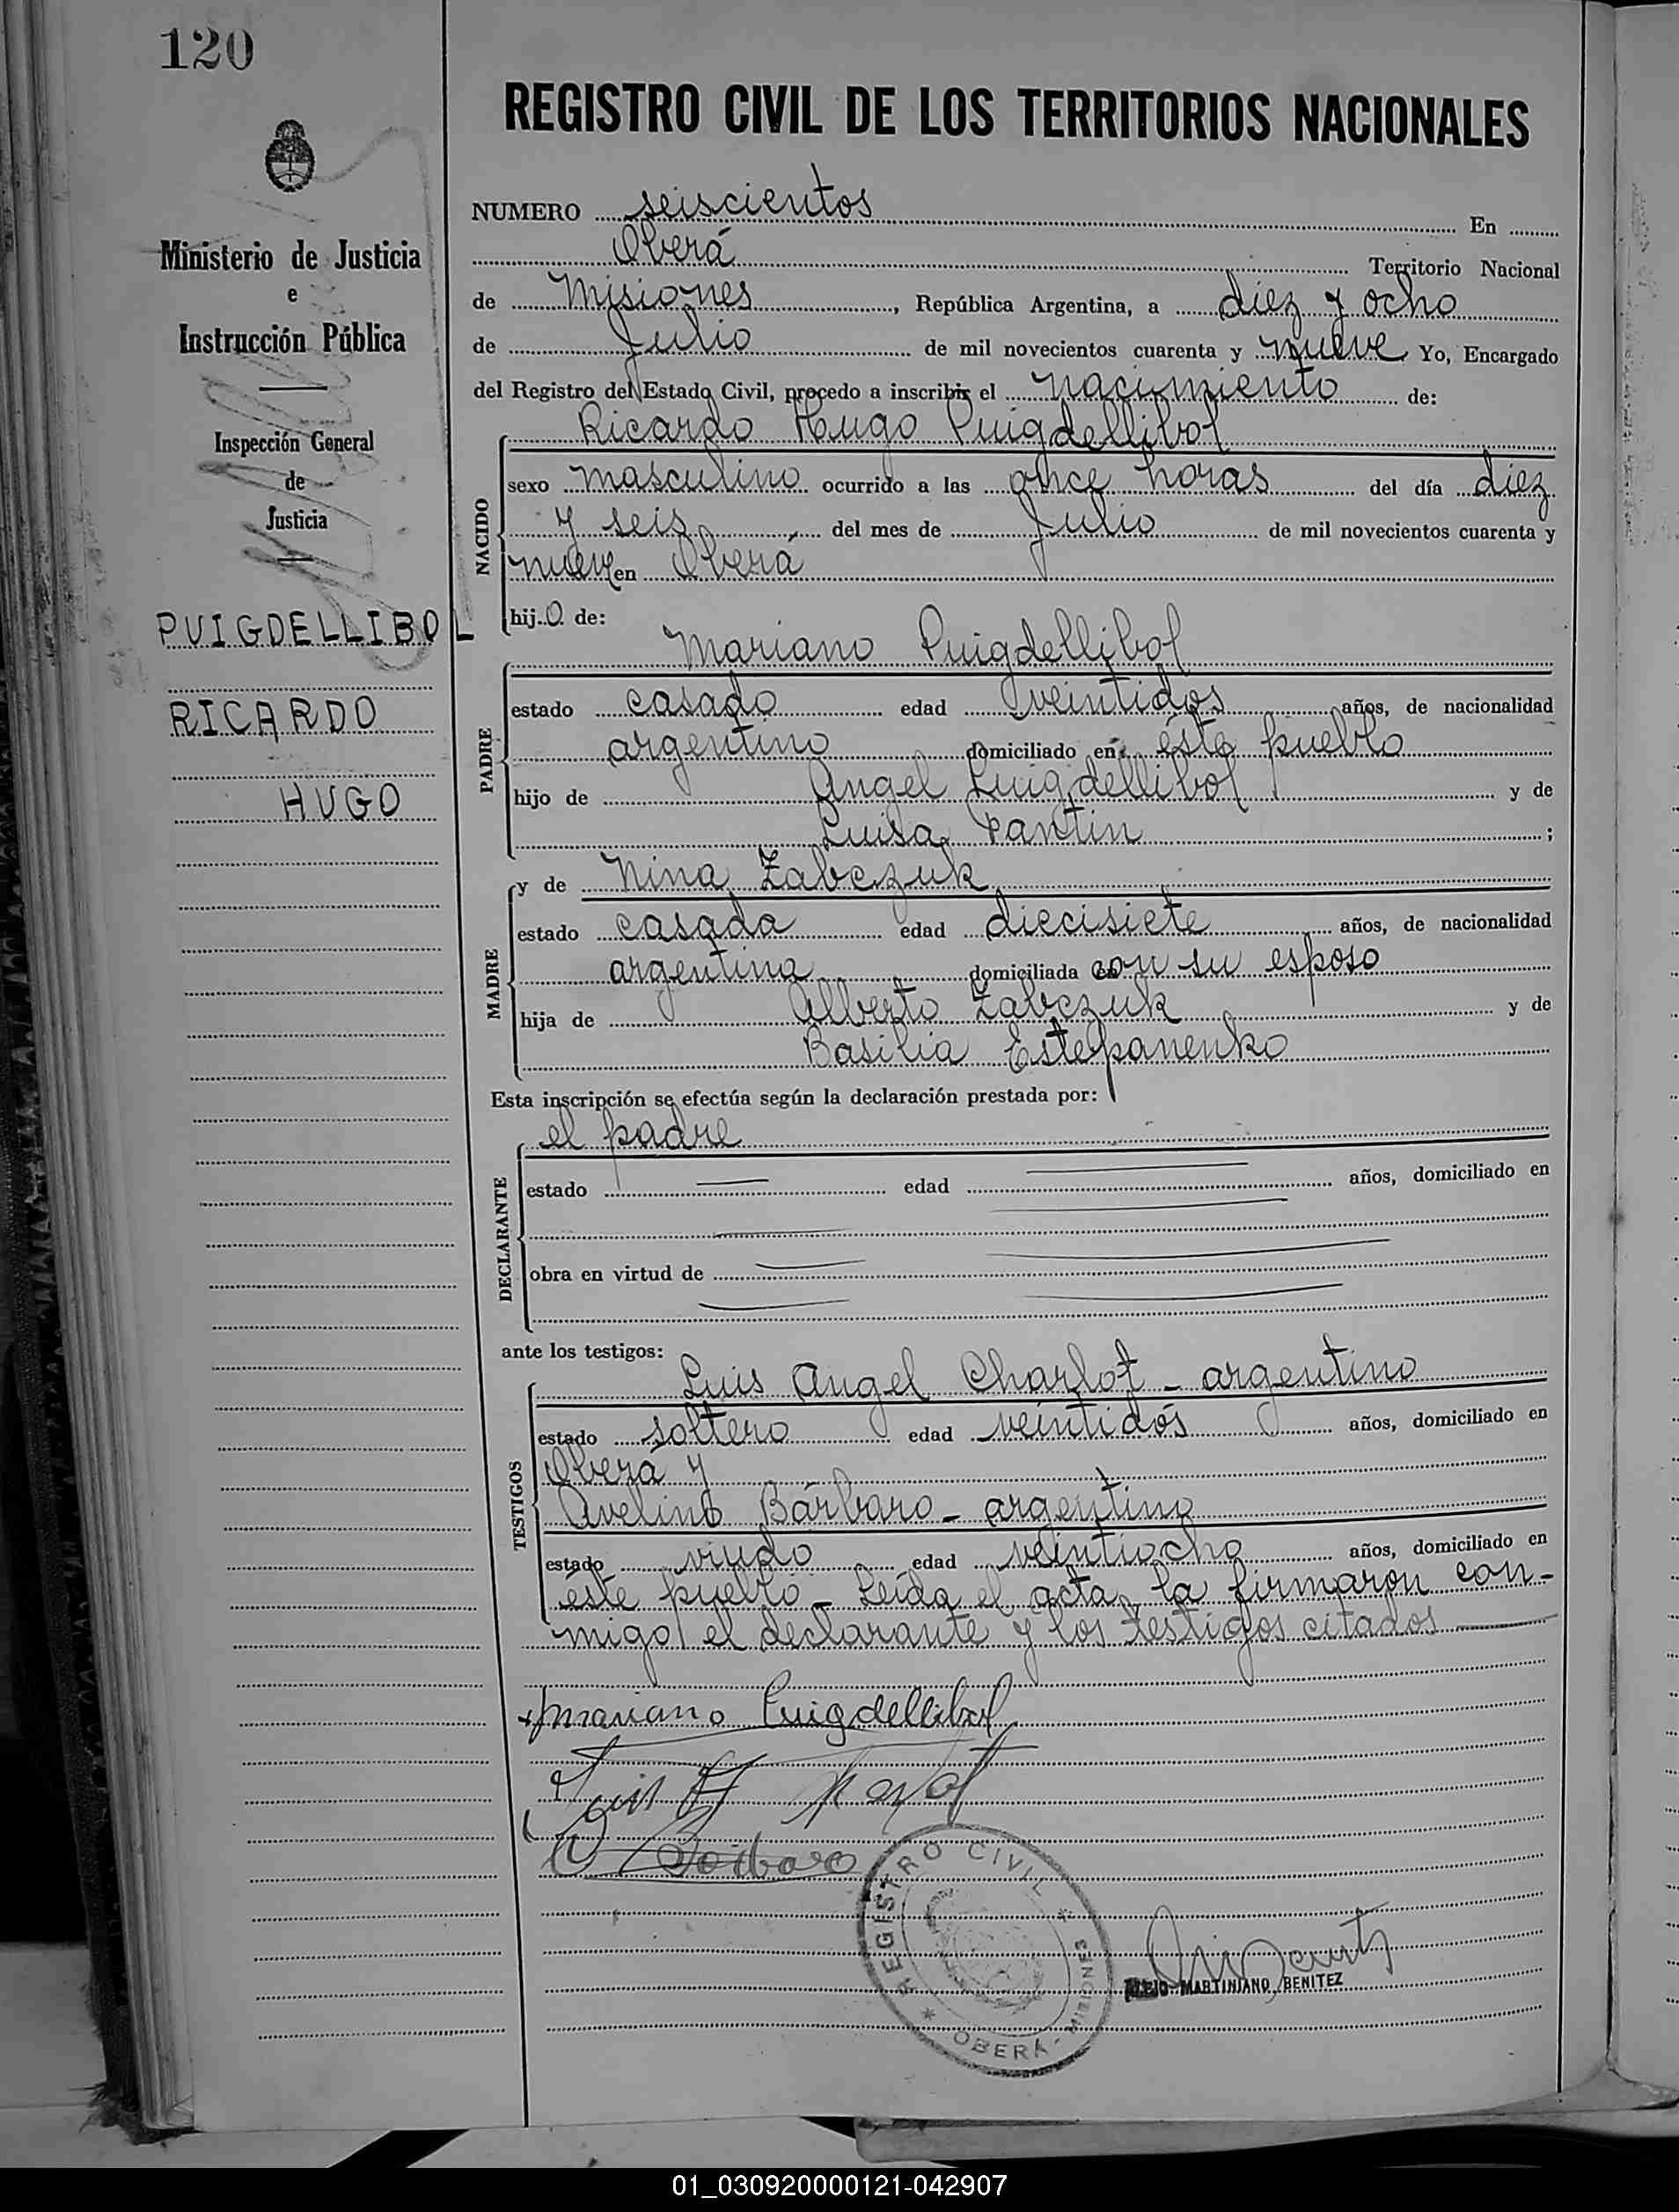 120
REGISTRO CIVIL DE LOS TERRITORIOS NACIONALES
Ministerio de Justicia
e
Instrucción Pública
Inspección General
de
Justicia
PUIGDELLIBOL
RICARDO
HUGO
NUMERO seiscientos En
Oberá Territorio Nacional
de Misiones, República Argentina, a diez y ocho
de Julio de mil novecientos cuarenta y nueve Yo, Encargado
del Registro del Estado Civil, procedo a inscribir el nacimiento de:
Ricardo Hugo Puigdellibol
NACIDO
sexo masculino ocurrido a las once horas del día diez
y seis del mes de Julio de mil novecientos cuarenta y
nueve en Oberá
hij o de:
Mariano Puigdellibol
PADRE
estado casado edad veintidos años, de nacionalidad
argentino domiciliado en éste pueblo
hijo de Angel Puigdellibol y de
Luisa Pantin ;
MADRE
y de Nina Zabczuk
estado casada edad diecisiete años, de nacionalidad
argentina domiciliada con su esposo
hija de Alberto Zabczuk y de
Basilia Estepanenko
Esta inscripción se efectúa según la declaración prestada por:
el padre
DECLARANTE
estado edad años, domiciliado en
obra en virtud de
ante los testigos:
Luis Angel Charlot - argentino
TESTIGOS
estado soltero edad veintidós años, domiciliado en
Obera y
Avelino Bárbaro - argentino
estado viudo edad veintiocho años, domiciliado en
éste pueblo - Leída el acta, la firmaron con-
migo el declarante y los testigos citados
Mariano Puigdellibol
REGISTRO CIVIL * OBERÁ - MISIONES *
MARTINIANO BENITEZ
01_030920000121-042907